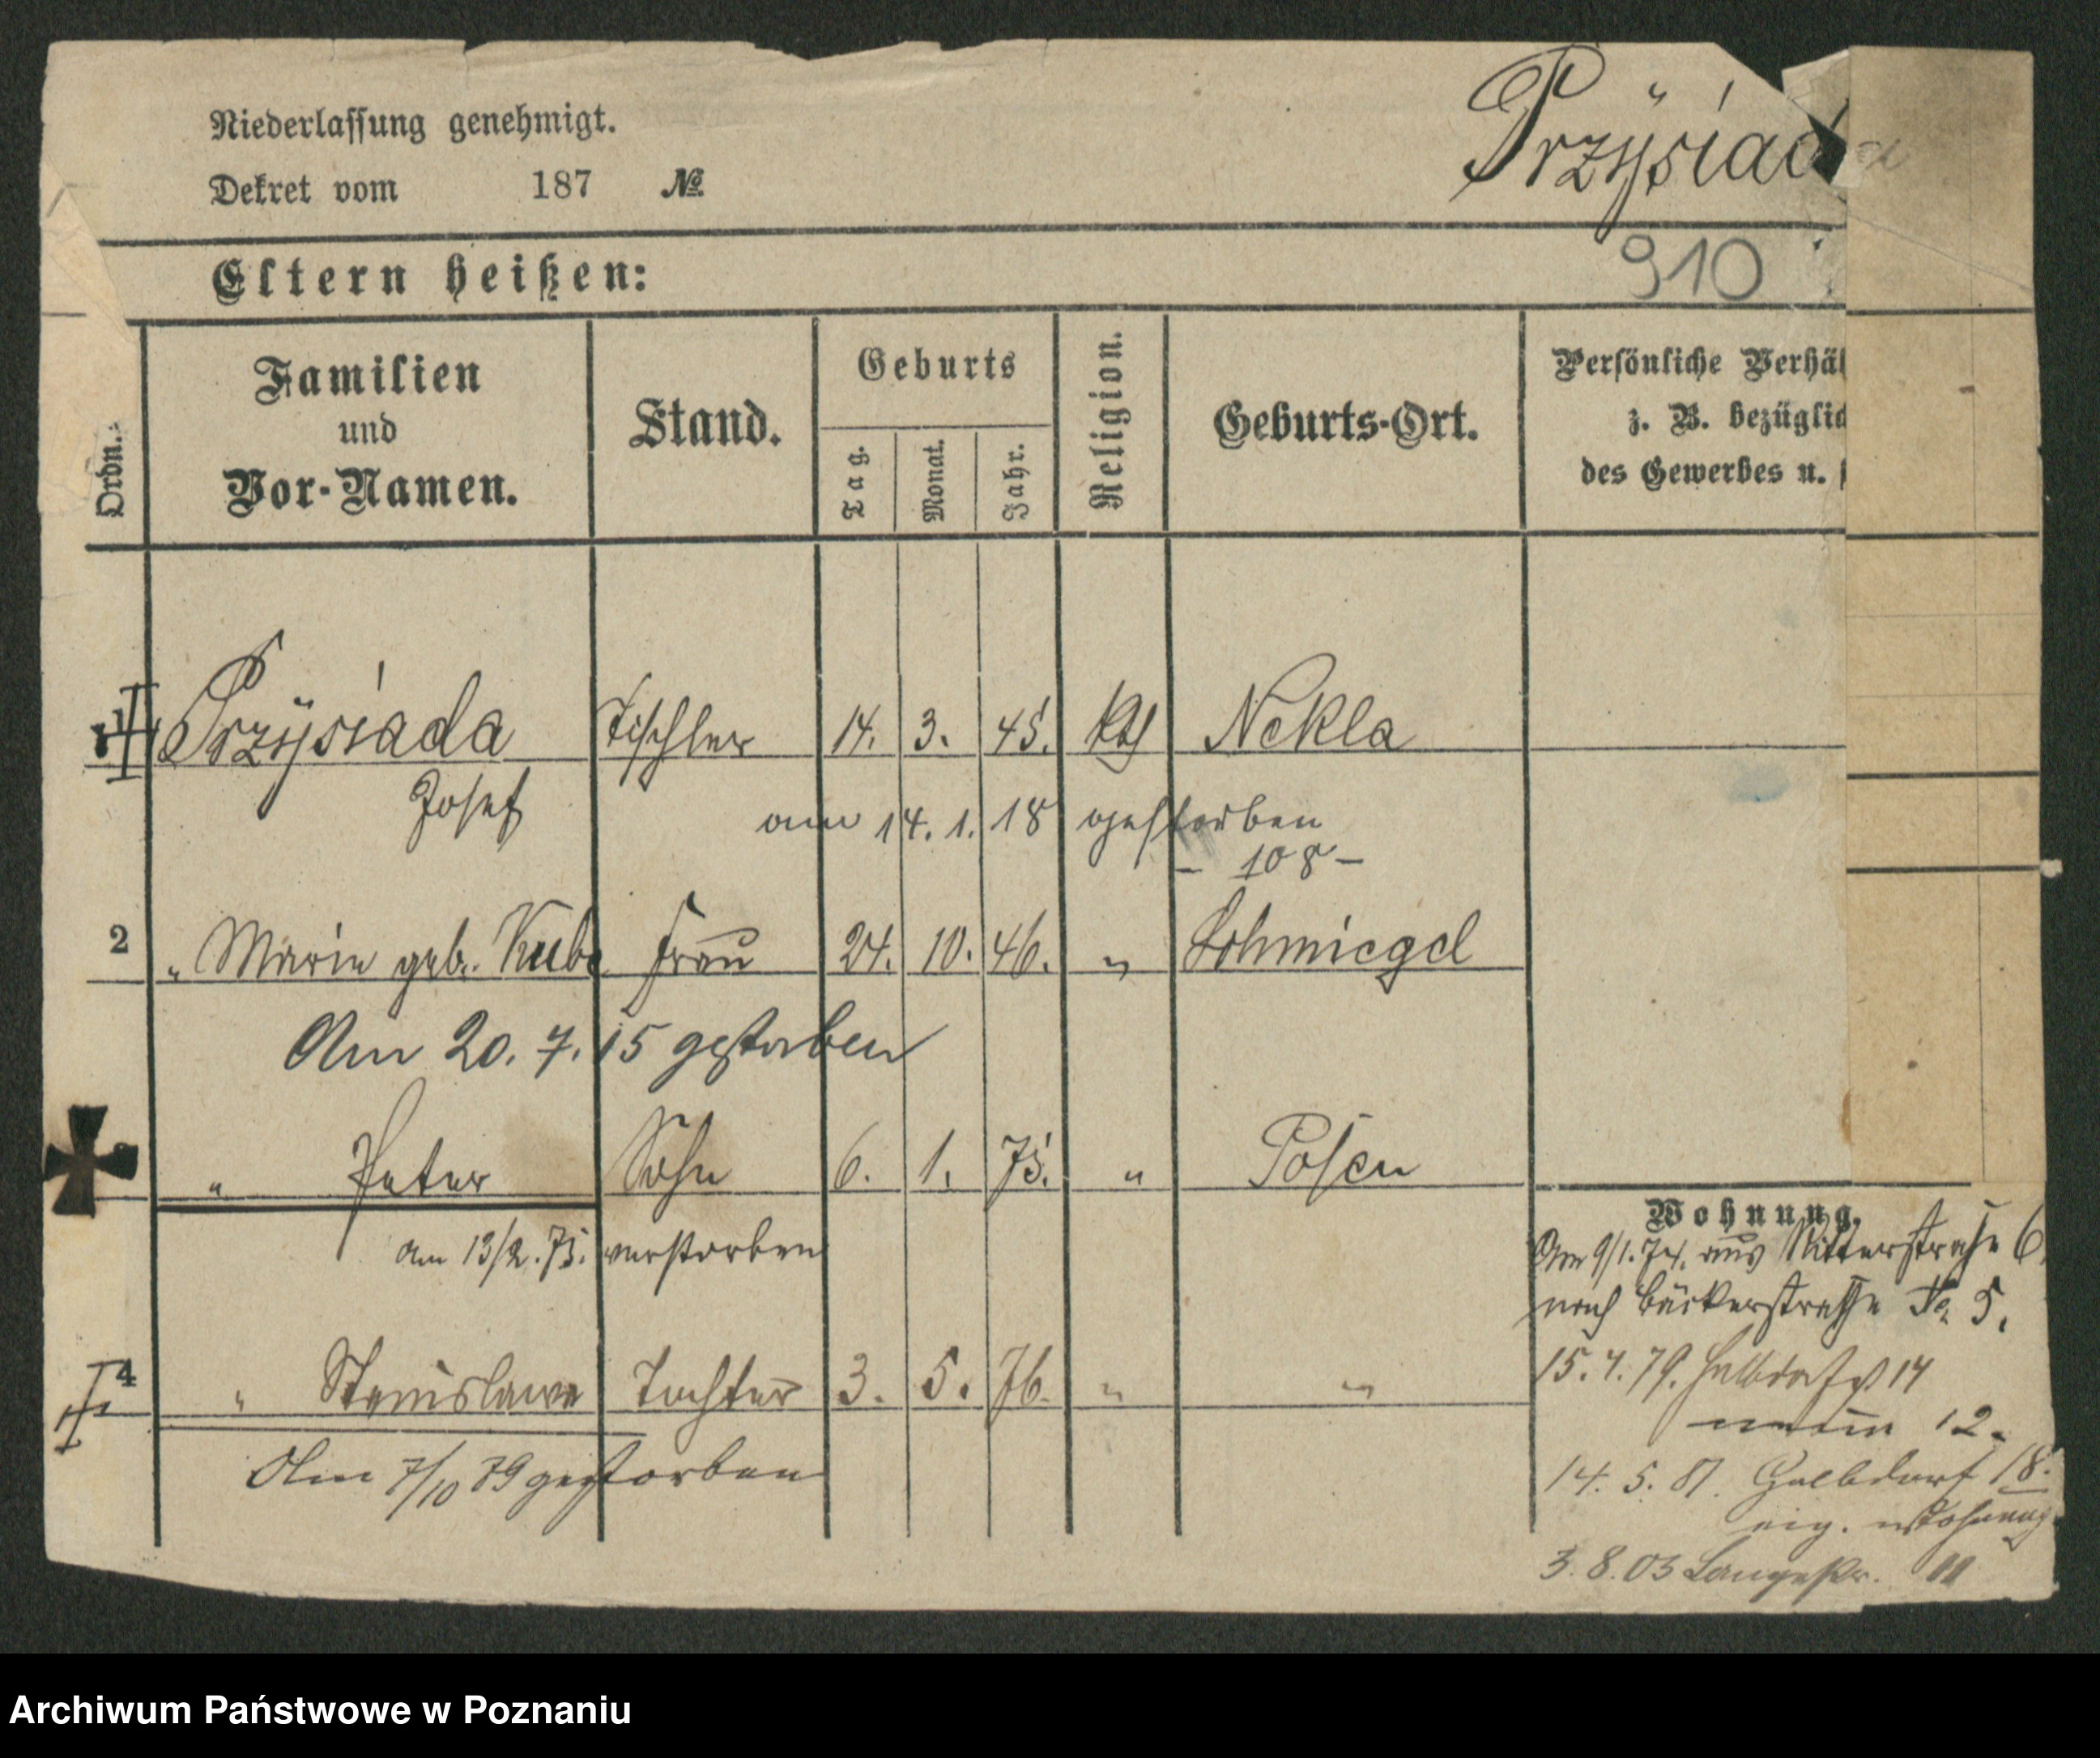 Niederlassung genehmigt.
Dekret vom 187 №
Przÿsiada
Eltern heißen:
910
Ordn.
Familien
und
Vor-Namen.
Stand.
Geburts
Tag.
Monat.
Jahr.
Religion.
Geburts-Ort.
Persönliche Verhäl
z. B. bezüglic
des Gewerbes u.
1 Przÿsiada Tischler 14. 3. 45. kth Nekla
Josef
am 14. 1. 18 gestorben
- 108 -
2 " Marie geb. Kube Frau 24. 10. 46. " Schmiegel
Am 20. 7. 15 gestorben
" Peter Sohn 6. 1. 75. " Posen
am 13/2. 75. verstorben
4 " Stanislawa Tochter 3. 5. 76. " "
Am 7/10 79 gestorben
Wohnung.
Am 9/1. 74. aus Ritterstraße 6
nach Bäckerstraße No 5.
15. 4. 79. Halbdorfst 14
12.
14. 5. 81. Halbdorf 18.
eig. Wohnung
3. 8. 03 Langestr. 11
Archiwum Państwowe w Poznaniu